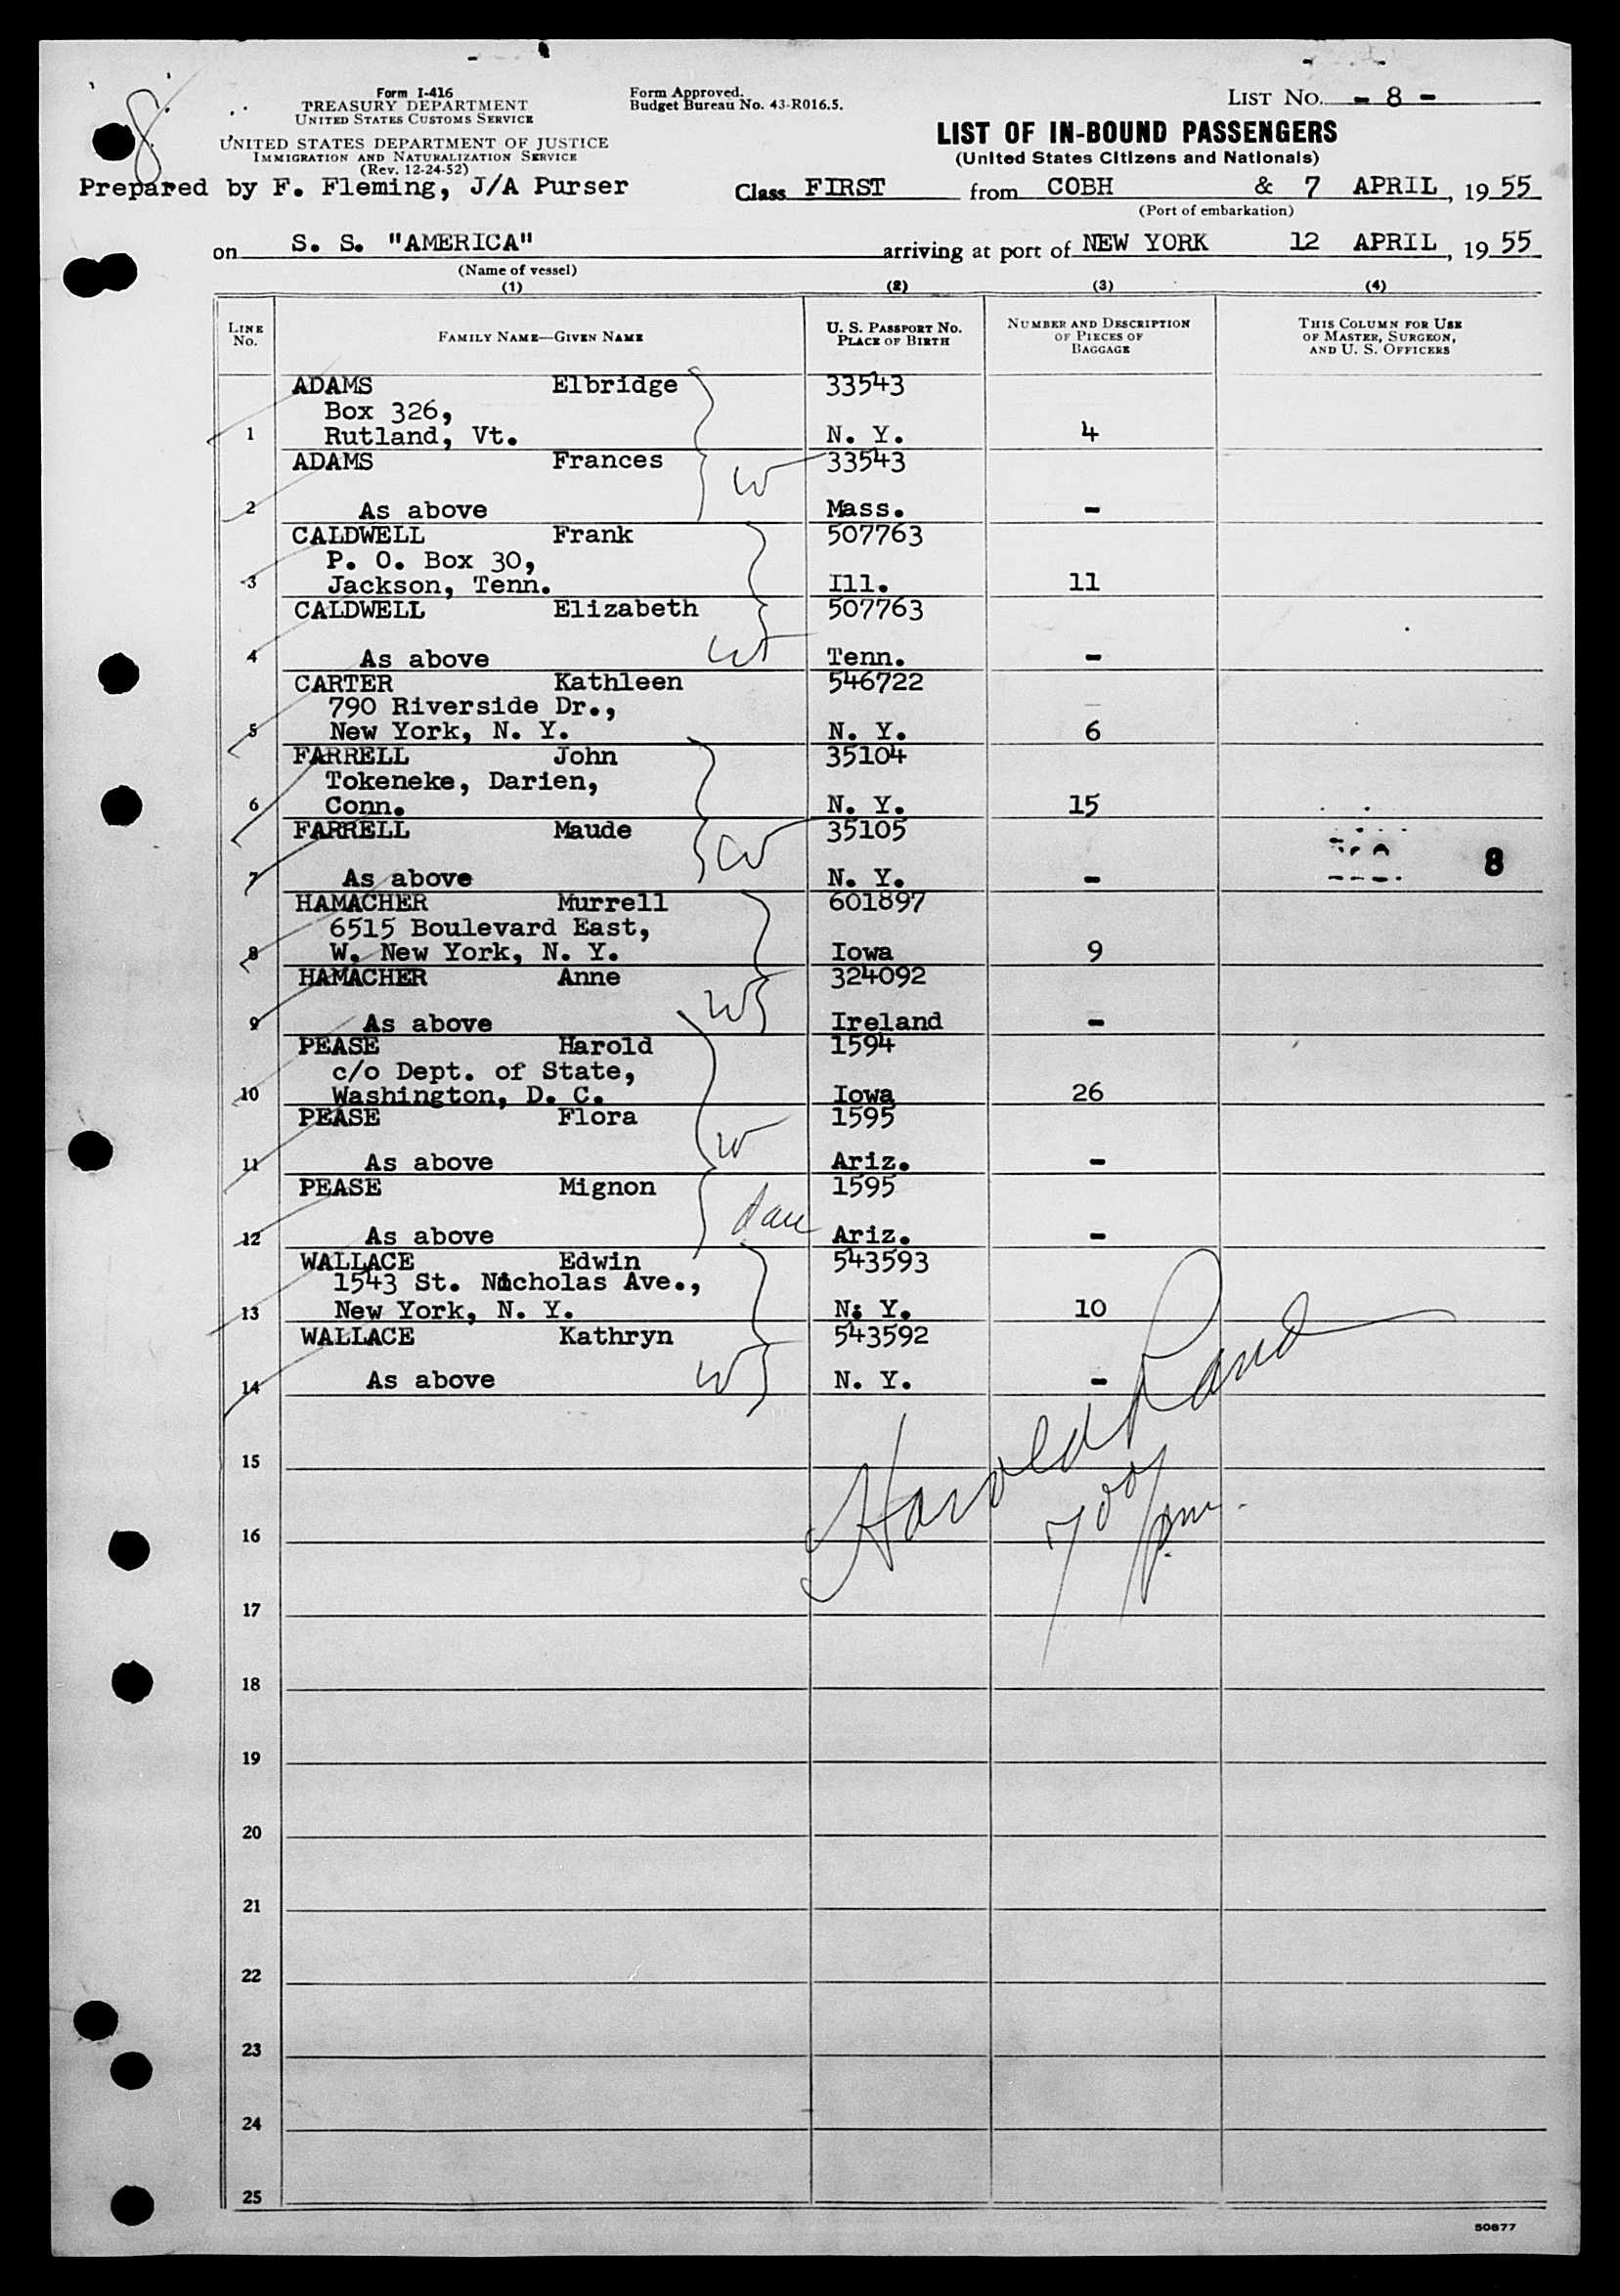 8
Form I-416
TREASURY DEPARTMENT
UNITED STATES CUSTOMS SERVICE
UNITED STATES DEPARTMENT OF JUSTICE
IMMIGRATION AND NATURALIZATION SERVICE
(Rev. 12-24-52)
Form Approved.
Budget Bureau No. 43-R016.5.
LIST NO. - 8 -
LIST OF IN-BOUND PASSENGERS
(United States Citizens and Nationals)
Prepared by F. Fleming, J/A Purser
Class FIRST from COBH & 7 APRIL, 19 55
(Port of embarkation)
on S. S. "AMERICA" arriving at port of NEW YORK 12 APRIL, 19 55
(Name of vessel)
(1) (2) (3) (4)
LINE NO. FAMILY NAME—GIVEN NAME U. S. PASSPORT NO. PLACE OF BIRTH NUMBER AND DESCRIPTION OF PIECES OF BAGGAGE THIS COLUMN FOR USE OF MASTER, SURGEON, AND U. S. OFFICERS
ADAMS Elbridge 33543
Box 326,
1 Rutland, Vt. N. Y. 4
ADAMS Frances 33543
W
2 As above Mass. -
CALDWELL Frank 507763
P. O. Box 30,
3 Jackson, Tenn. Ill. 11
CALDWELL Elizabeth 507763
4 As above Tenn. -
CARTER Kathleen 546722
790 Riverside Dr.,
5 New York, N. Y. N. Y. 6
FARRELL John 35104
Tokeneke, Darien,
6 Conn. N. Y. 15
FARRELL Maude 35105
W
8
7 As above N. Y. -
HAMACHER Murrell 601897
6515 Boulevard East,
8 W. New York, N. Y. Iowa 9
HAMACHER Anne 324092
W
9 As above Ireland -
PEASE Harold 1594
c/o Dept. of State,
10 Washington, D. C. Iowa 26
PEASE Flora 1595
W
11 As above Ariz. -
PEASE Mignon 1595
dau
12 As above Ariz. -
WALLACE Edwin 543593
1543 St. Nicholas Ave.,
13 New York, N. Y. N. Y. 10
WALLACE Kathryn 543592
W
14 As above N. Y. -
Harold Rand
15
700/pm.
16
17
18
19
20
21
22
23
24
25
50677